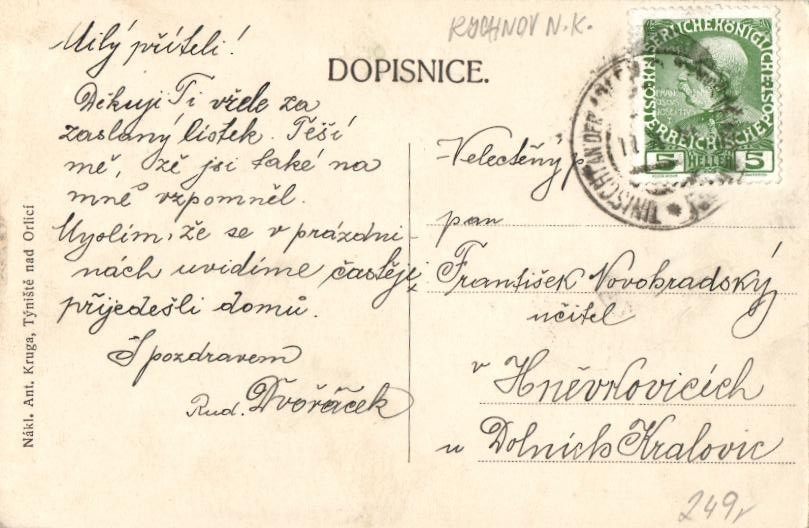 RYCHNOV N.K.
DOPISNICE.
Milý příteli!
Děkuji Ti vřele za
zaslaný lístek. Těší
mě, že jsi také na
mně vzpomněl.
Myslím, že se v prázdni-
nách uvidíme častěji,
přijedešli domů.
S pozdravem
Rud. Dvořáček
Velectěný p
pan
František Novohradský
učitel
v Hněvkovicích
u Dolních Kralovic
249,
Nákl. Ant. Kruga, Týniště nad Orlicí
5 HELLER 5
TINISCHT AN DER ADLER